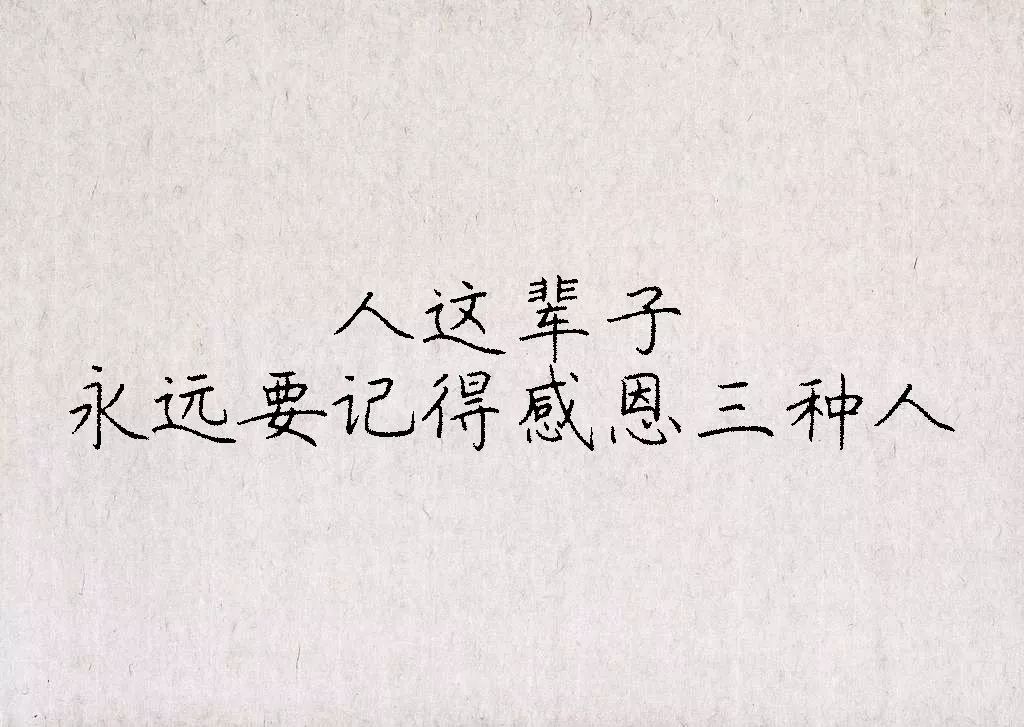 人这辈子
永远要记得感恩三种人